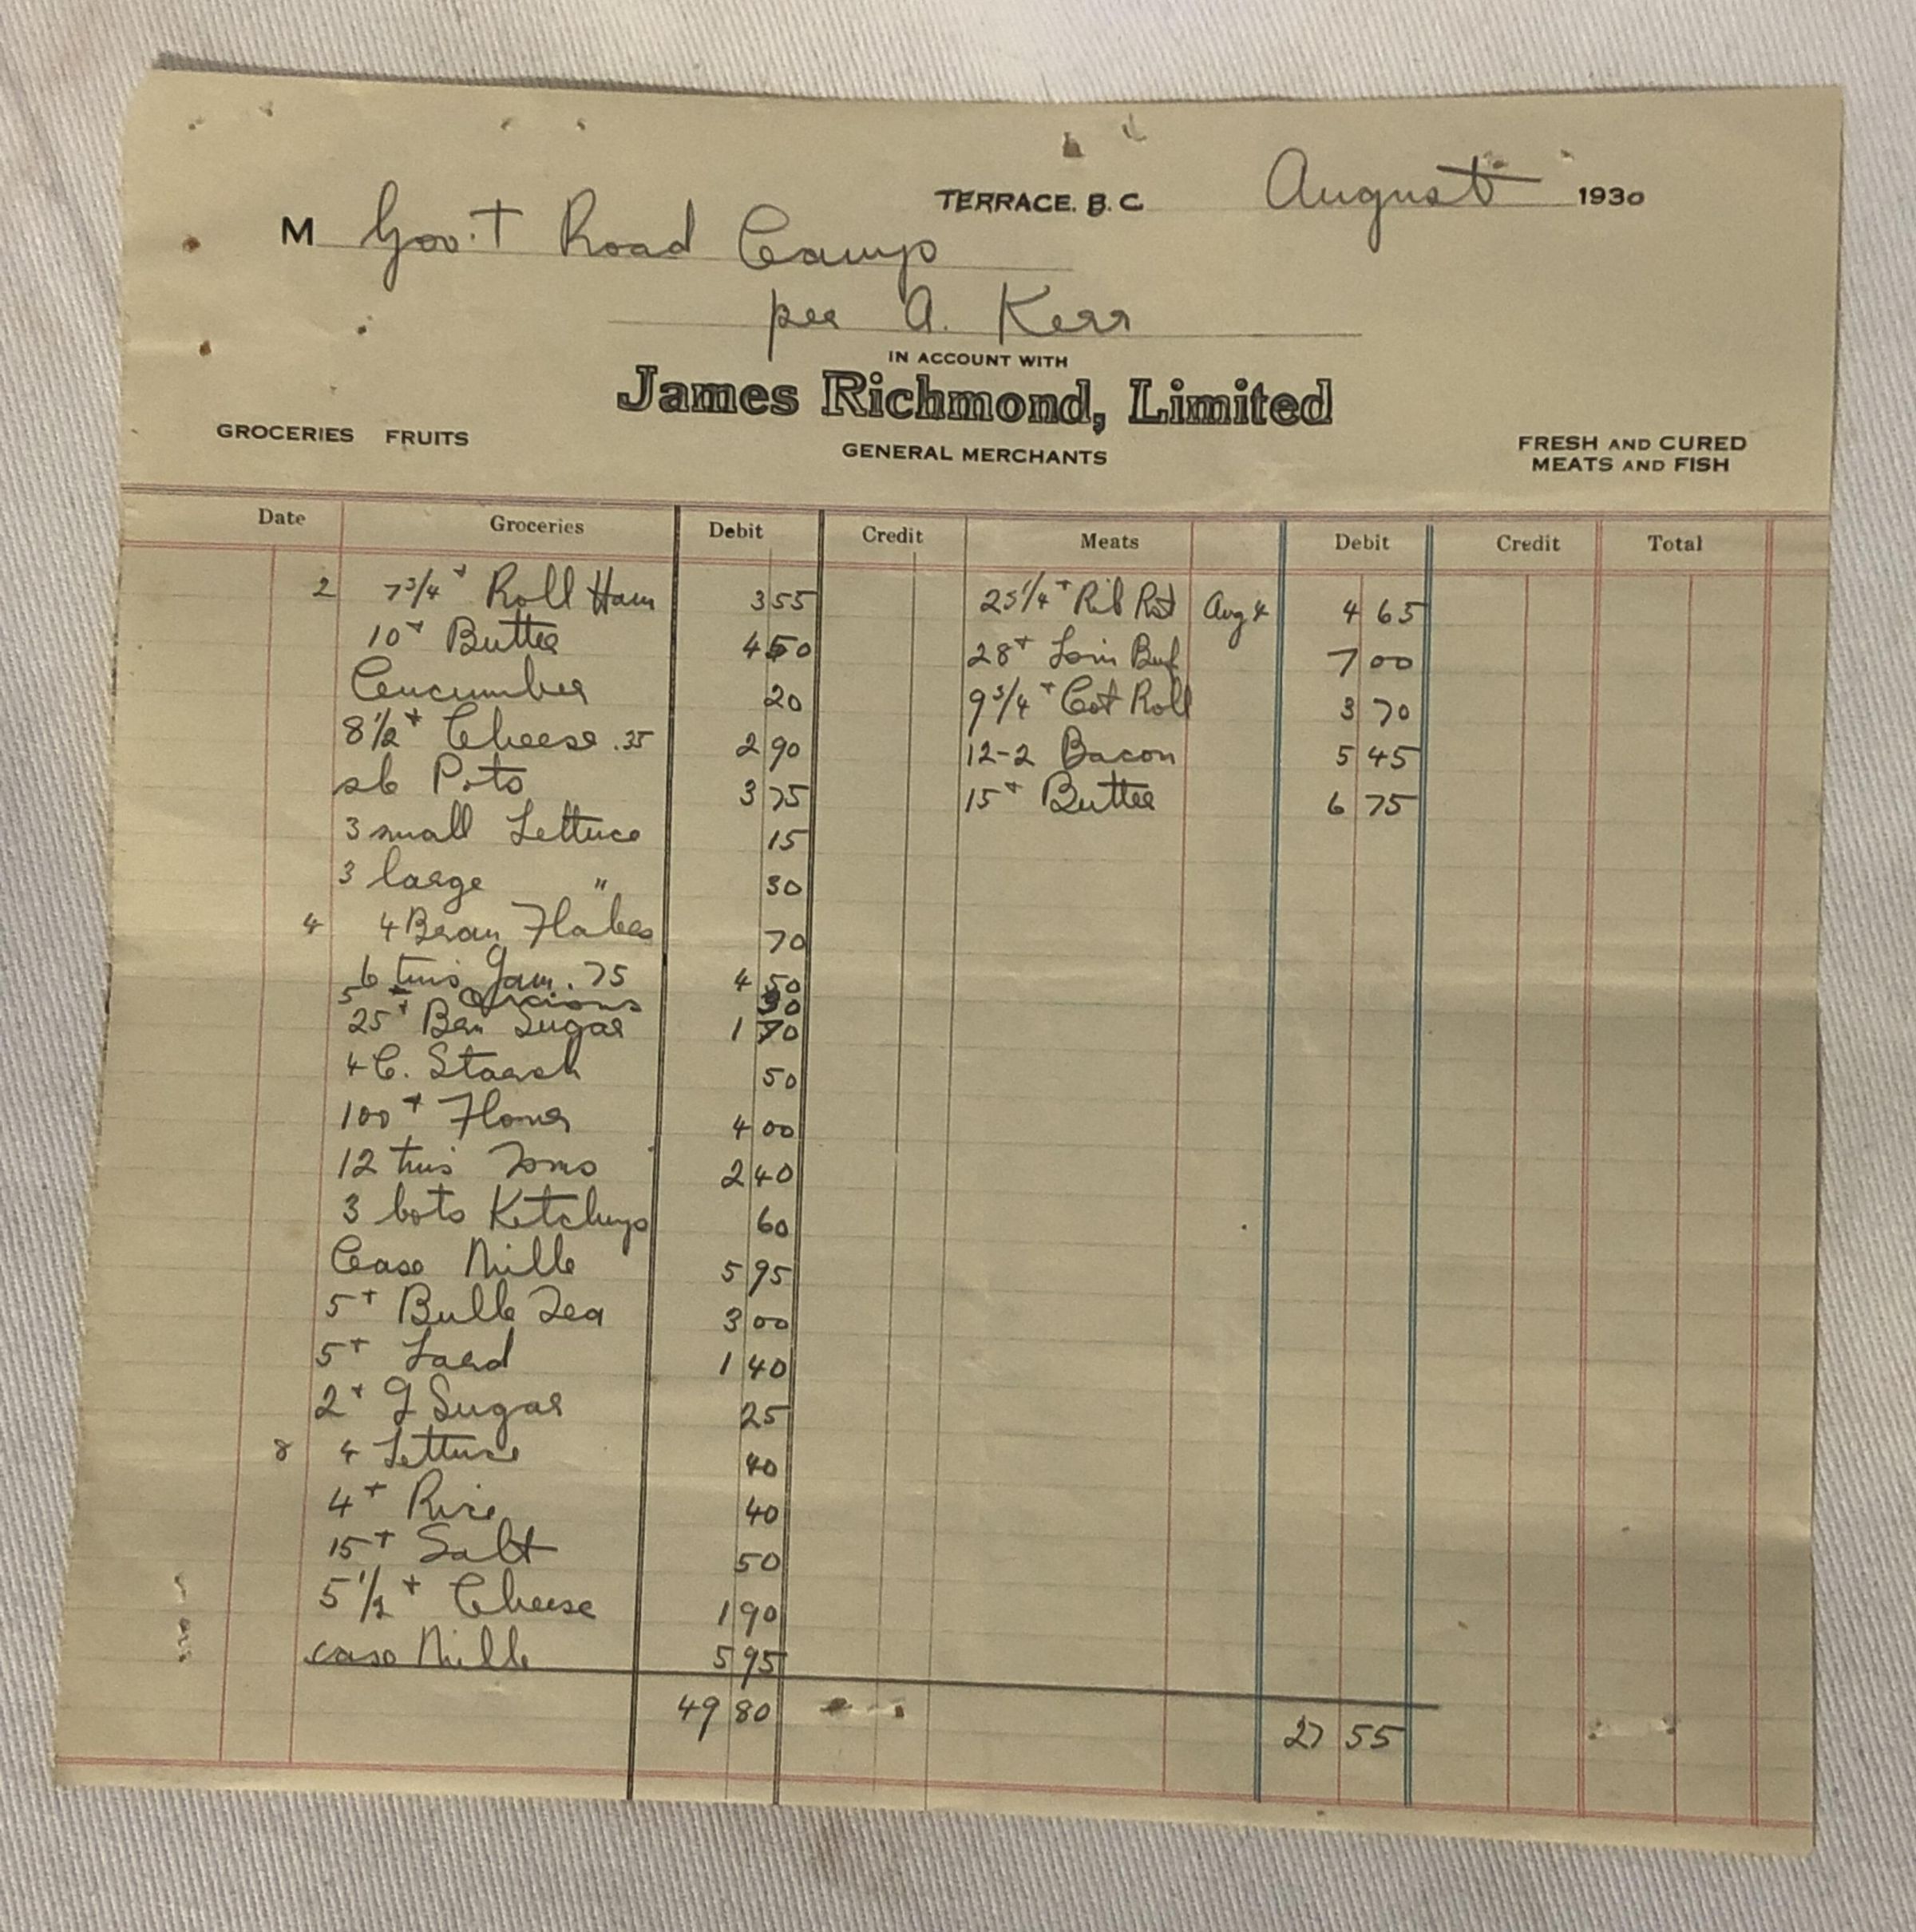 TERRACE. B. C. August 1930
M Gov.t Road Camp
per A. Kerr
IN ACCOUNT WITH
James Richmond, Limited
GROCERIES FRUITS
GENERAL MERCHANTS
FRESH AND CURED
MEATS AND FISH
Date Groceries Debit Credit Meats Debit Credit Total
2 7 3/4 # Roll Ham 3 55 25 1/4 # Rib Rst Aug 4 4 65
10 # Butter 4 50 28 # Loin Beef 7 00
Cucumber 20 9 3/4 # Cot Roll 3 70
8 1/2 # Cheese .35 2 90 12-2 Bacon 5 45
sk Pots 3 75 15 # Butter 6 75
3 small Lettuce 15
3 large " 30
4 4 Bran Flakes 70
6 tins Jam .75 4 50
5 # Onions 30
25 # Brn Sugar 1 70
4 C. Starch 50
100 # Flour 4 00
12 tins Toms 2 40
3 bots Ketchup 60
Case Milk 5 95
5 # Bulk Tea 3 00
5 # Lard 1 40
2 # I Sugar 25
8 4 Lettuce 40
4 # Rice 40
15 # Salt 50
5 1/2 # Cheese 1 90
case Milk 5 95
49 80 27 55